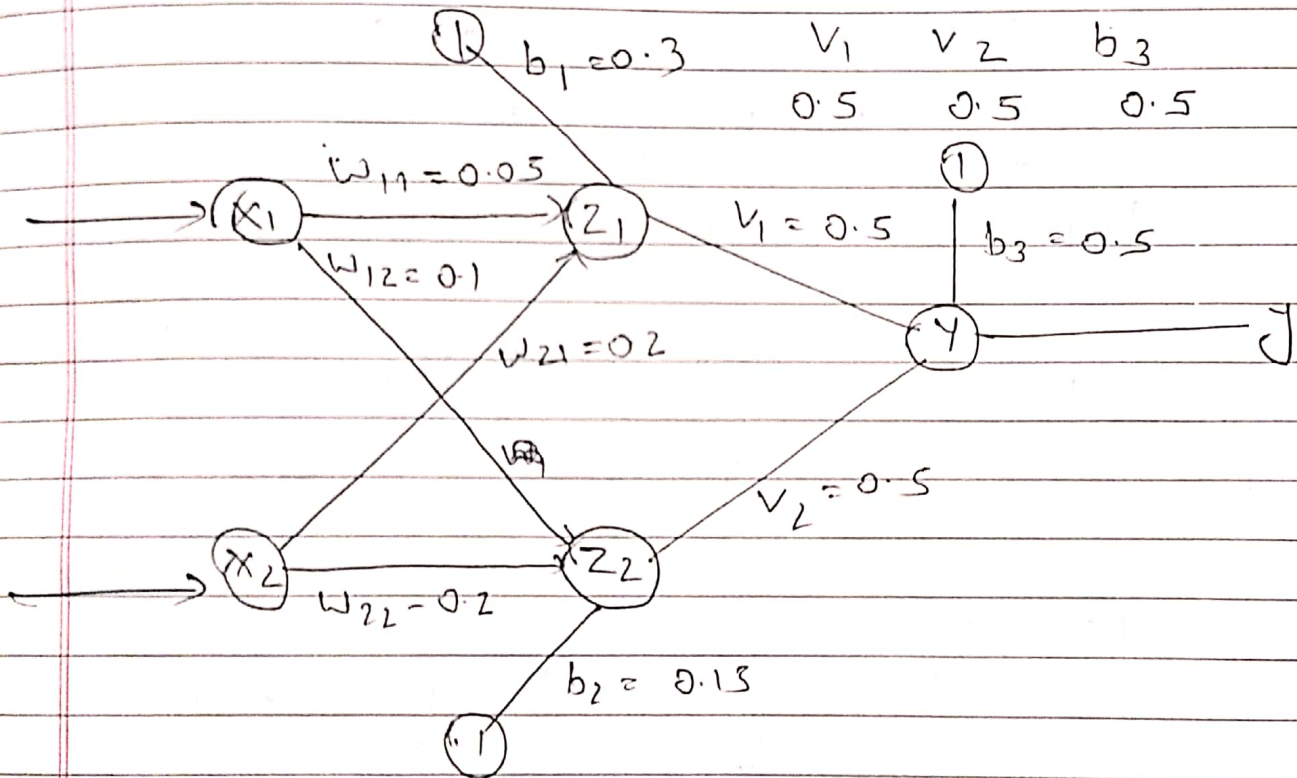 1 b1 = 0.3 V1 V2 b3
0.5 0.5 0.5
1
W11 = 0.05
X1 Z1 V1 = 0.5 b3 = 0.5
W12 = 0.1
W21 = 0.2 Y y
X2 Z2 V2 = 0.5
W22 - 0.2
b2 = 0.13
1